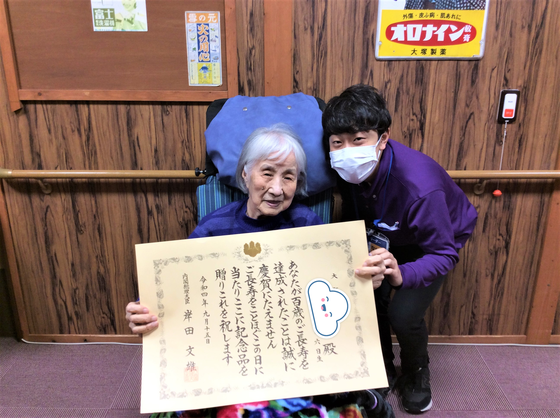 殿
あなたが百歳のご長寿を
達成されたことは誠に
慶賀にたえません
ご長寿をことほぐこの日に
当たりここに記念品を
贈りこれを祝します
令和四年九月十五日
内閣総理大臣 岸田文雄
外傷・皮ふ病・肌あれに
オロナイン軟膏
大塚製薬
火の元
火の用心
富士